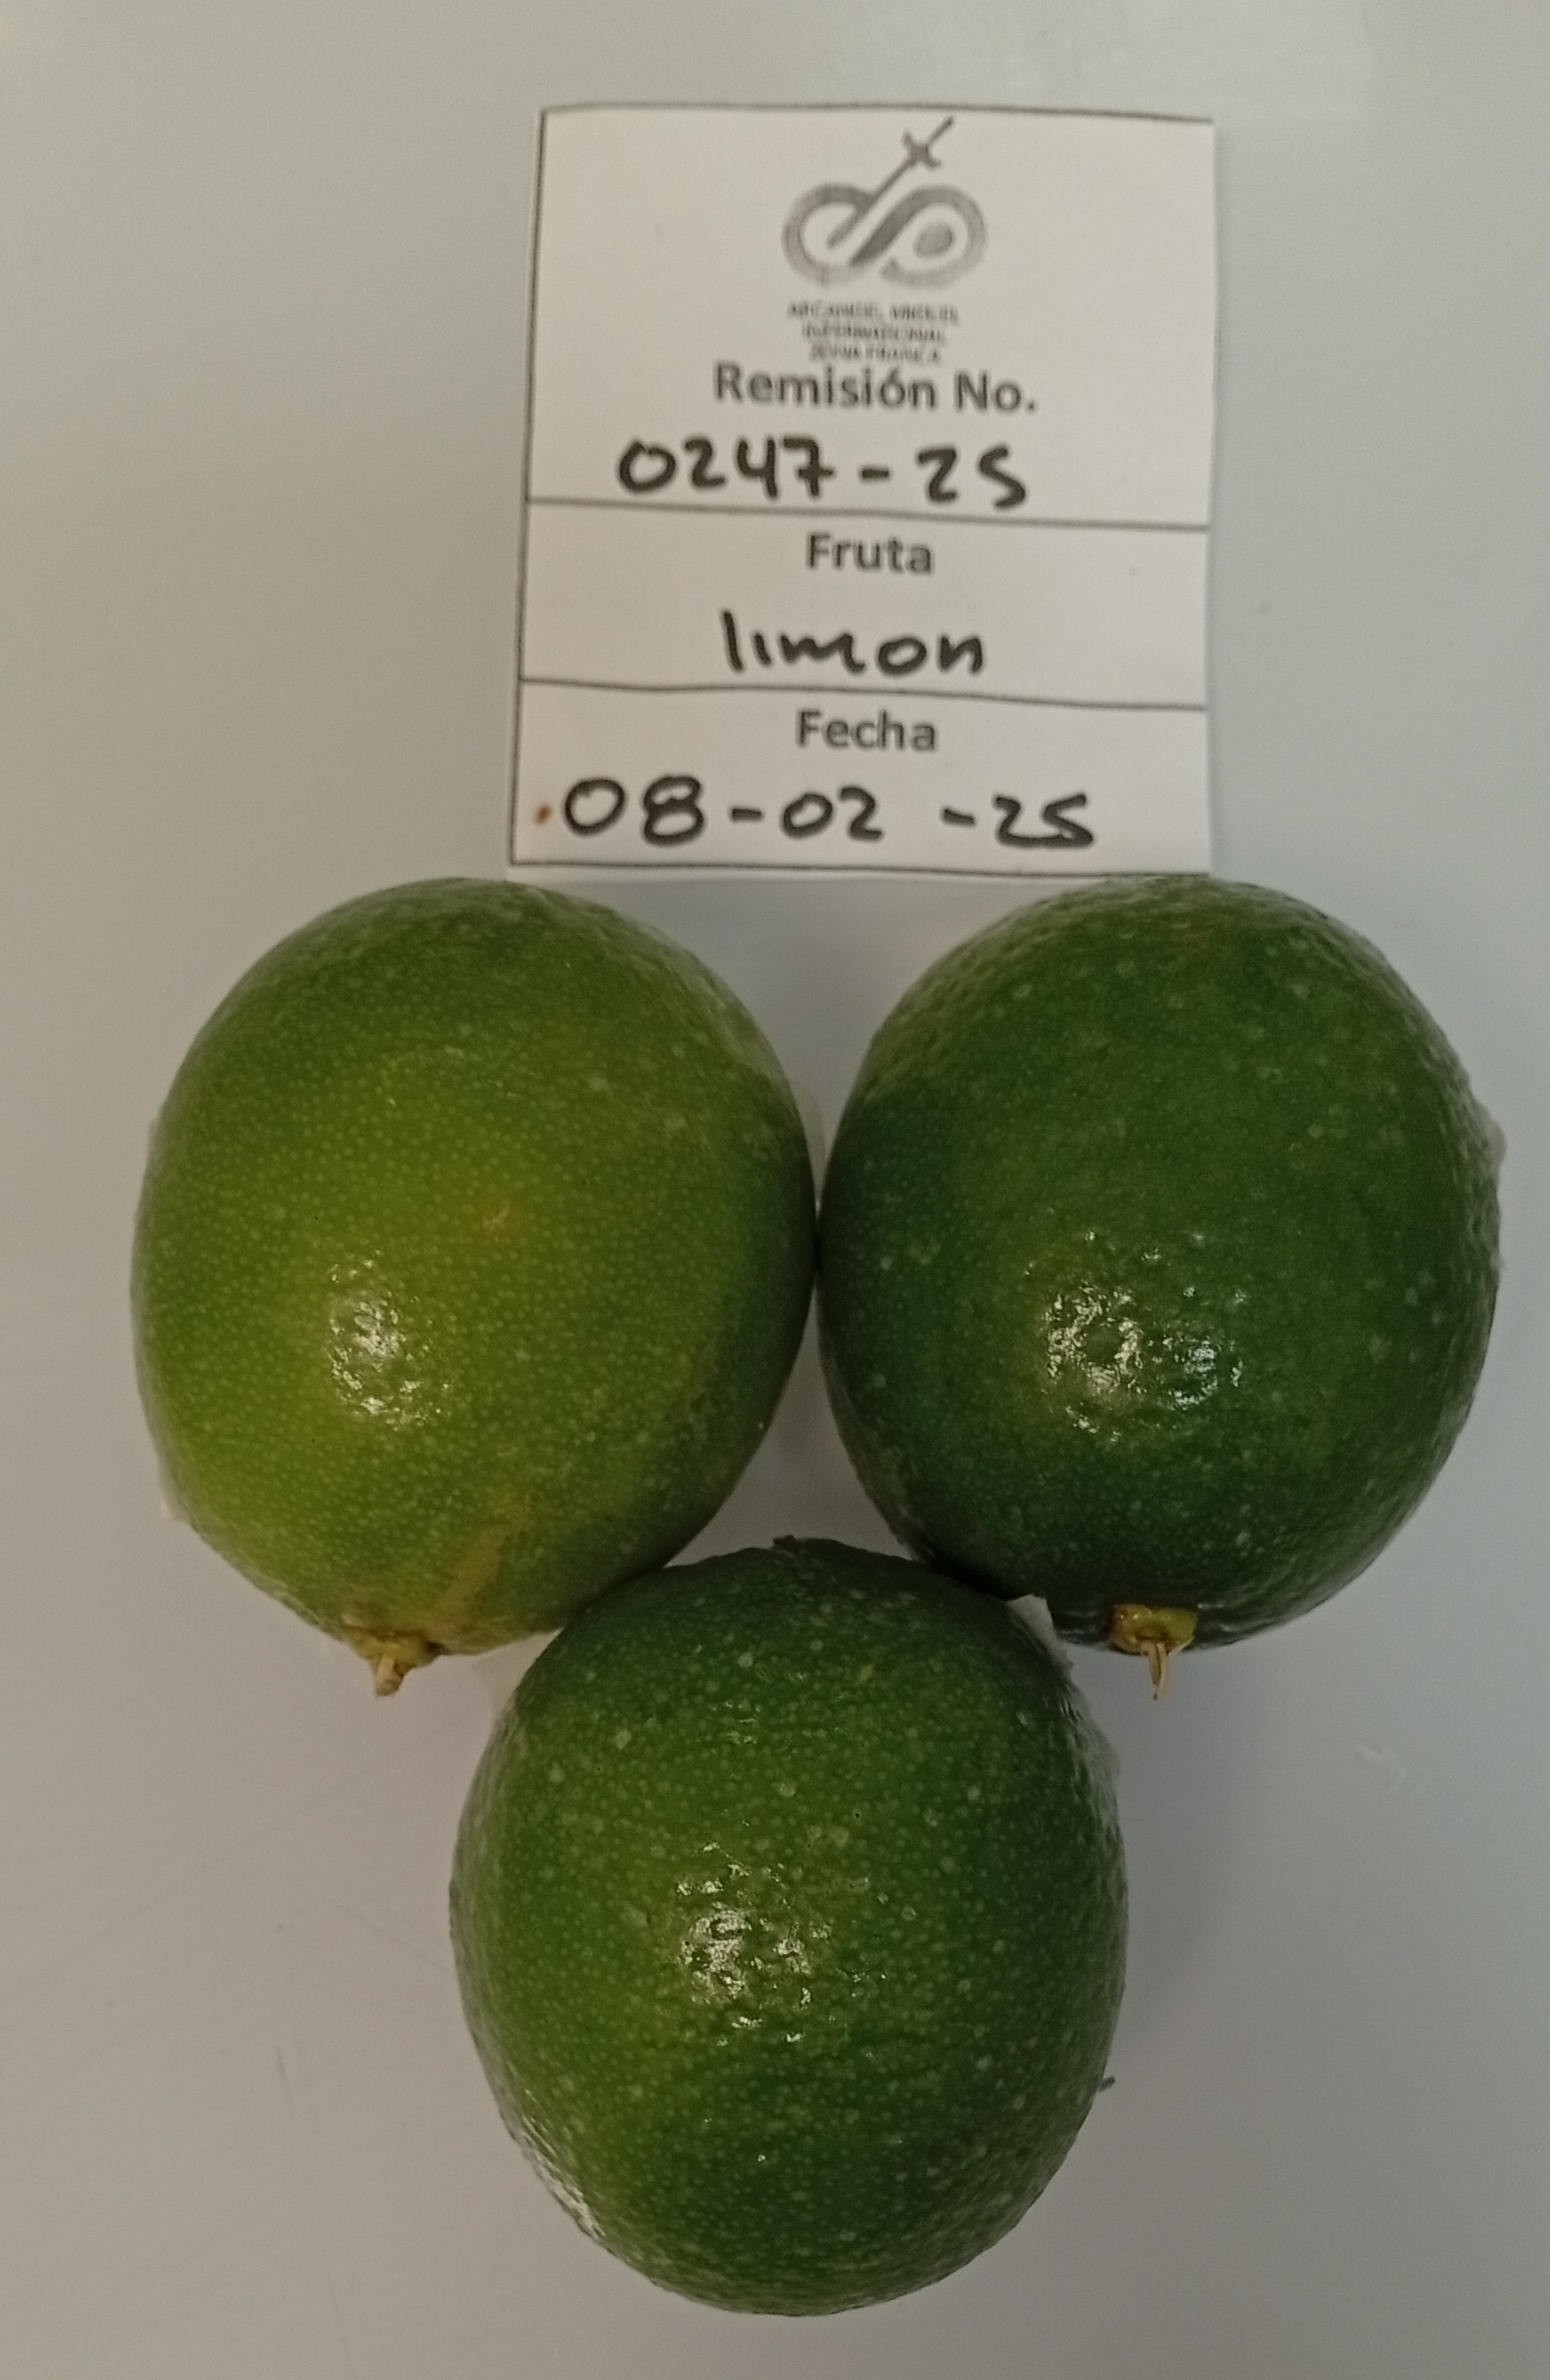 ARCANGEL MIGUEL
INTERNATIONAL
ZONA FRANCA
Remisión No.
0247-25
Fruta
limon
Fecha
08-02-25